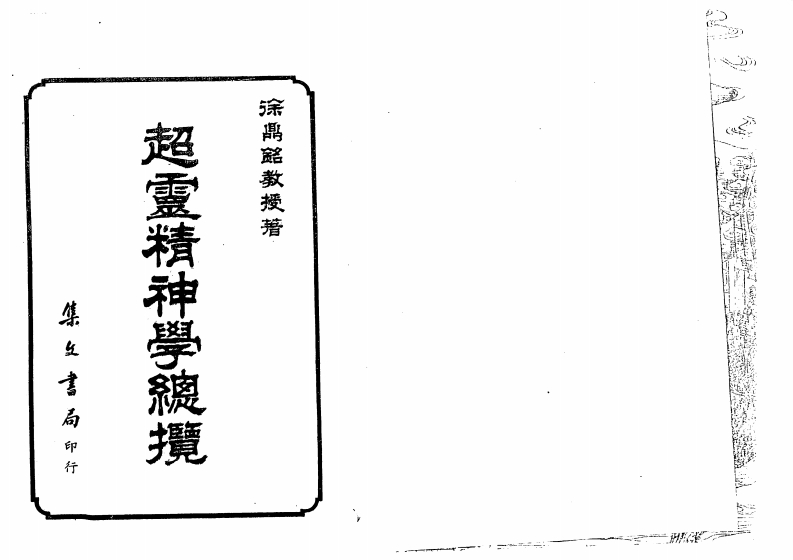 徐鼎銘教授著
超靈精神學總攬
集文書局印行